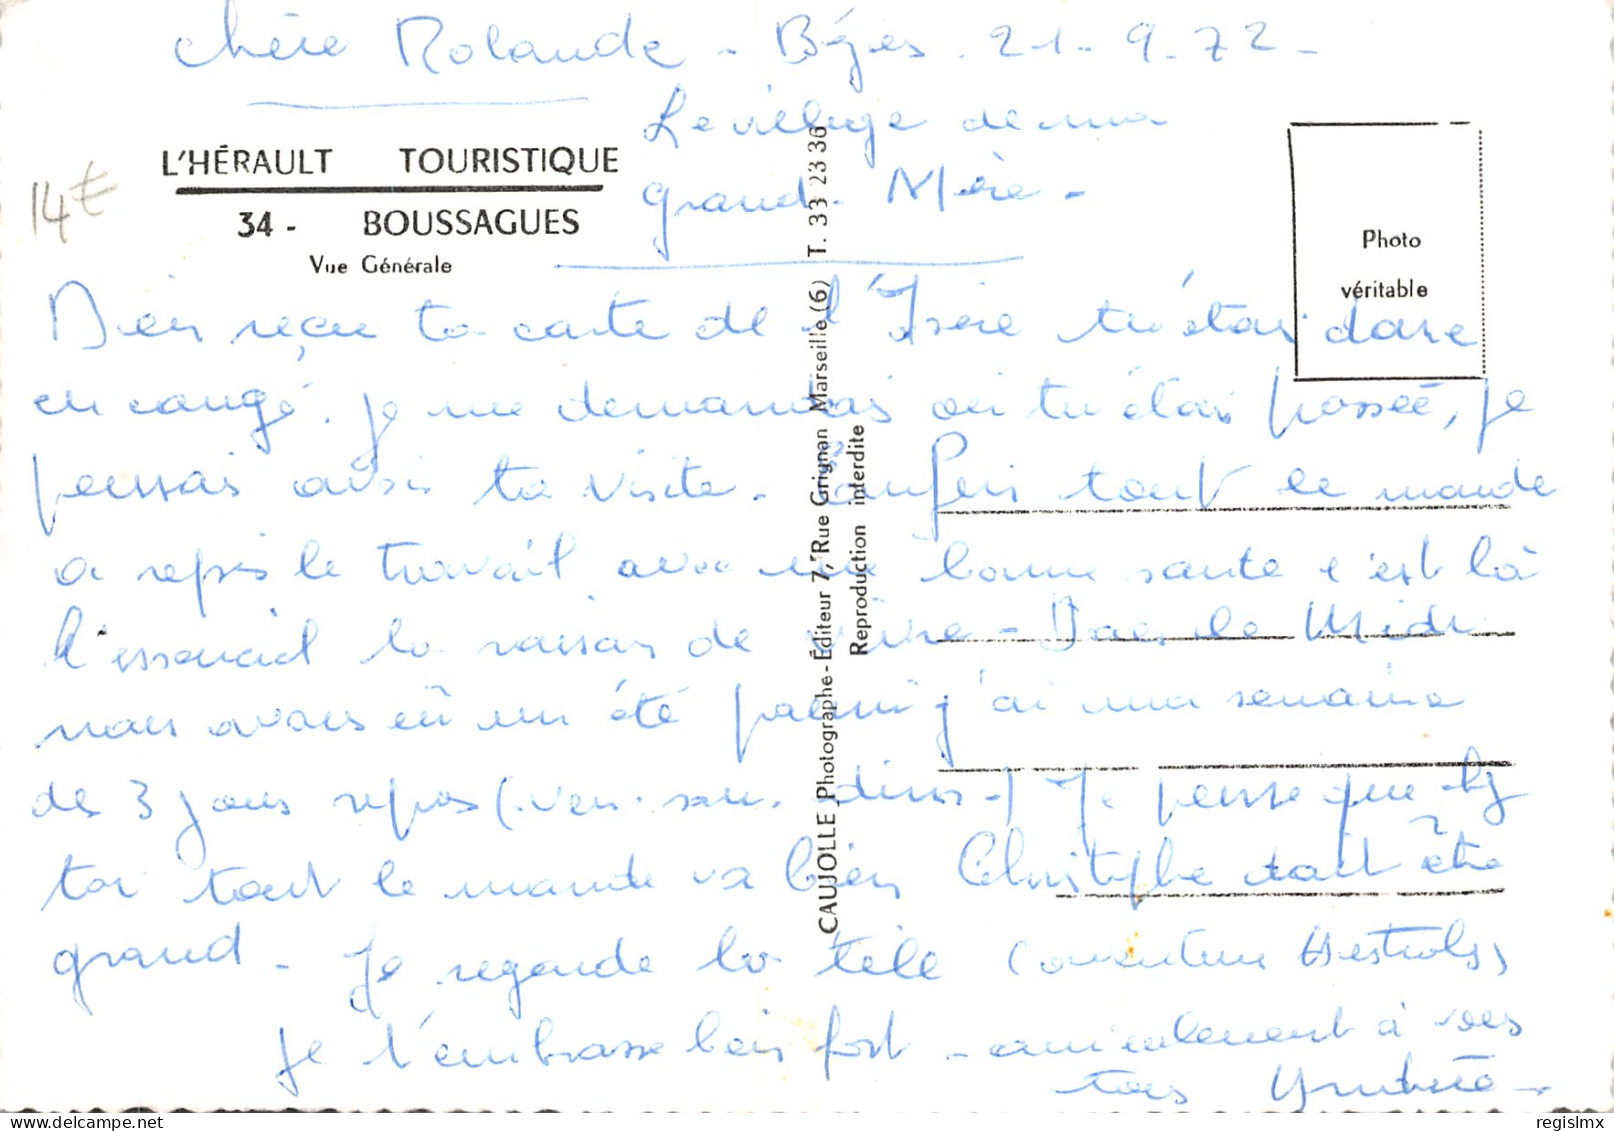 Chère Rolande - Béziers. 21. 9. 72 -
Le village de ma
grand-Mère -
14€
L'HÉRAULT TOURISTIQUE
34 - BOUSSAGUES
Vue Générale
Photo
véritable
CAUJOLLE Photographe-Éditeur 7, Rue Grignan Marseille (6) T. 33 23 36
Reproduction interdite
Bien reçu ta carte de l'Isère tu étais donc
en congé. Je me demandais où tu étais passée, je
pensais avoir ta visite. Enfin tout le monde
a repris le travail avec une bonne santé c'est là
l'essentiel la raison de vivre - Dans le Midi
nous avons eu un été j'ai ma semaine
de 3 jours repos (ven. sam. dim.) Je pense que chez
toi tout le monde va bien Christophe doit être
grand - Je regarde la télé (aventure
Je t'embrasse bien fort - amicalement à vous
tous
regislmx